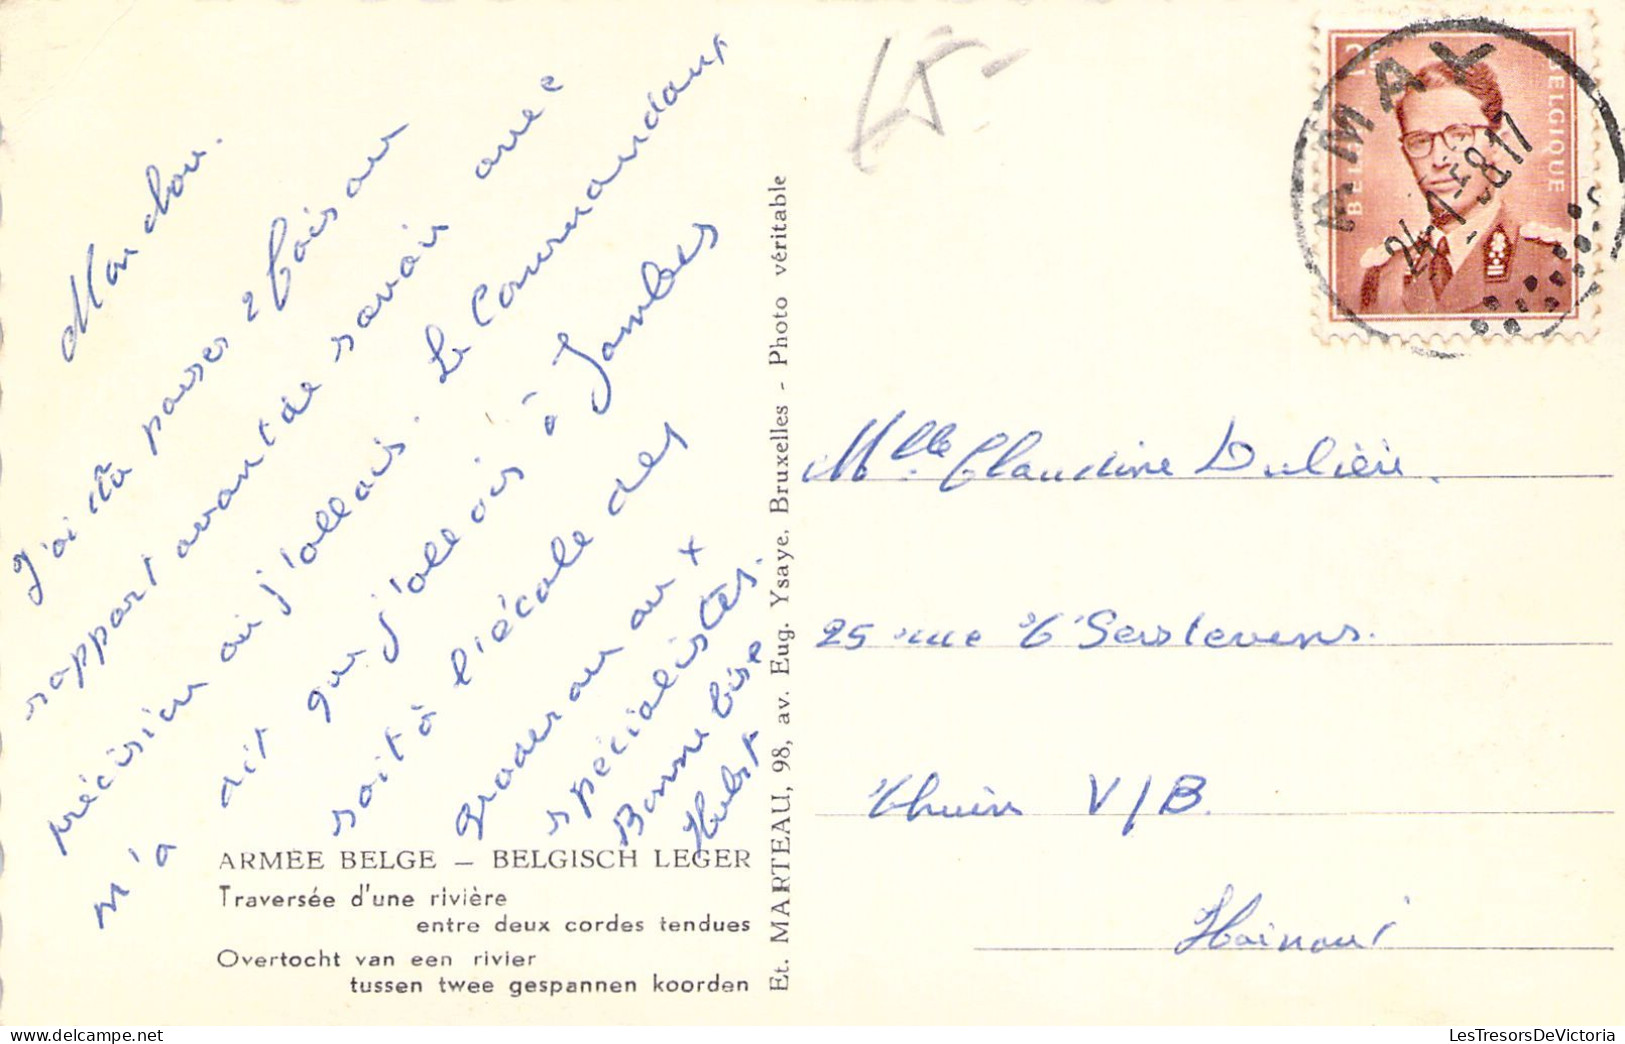 Mon chou.
J'ai dû passer 2 fois au
rapport avant de savoir avec
précision où j'allais. Le Commandant
m'a dit que j'allais à Jambes
soit à l'école des
gradés ou aux
spécialistes.
Bonne bise
Hubert
ARMÉE BELGE — BELGISCH LEGER
Traversée d'une rivière
entre deux cordes tendues
Overtocht van een rivier
tussen twee gespannen koorden
Et. MARTEAU, 98, av. Eug. Ysaye, Bruxelles - Photo véritable
45-
BELGIQUE
AMAY
24-1-58 17
Mlle Claudine Dulière.
25 rue t'Serstevens.
Thuin V/B.
Hainaut
LesTresorsDeVictoria